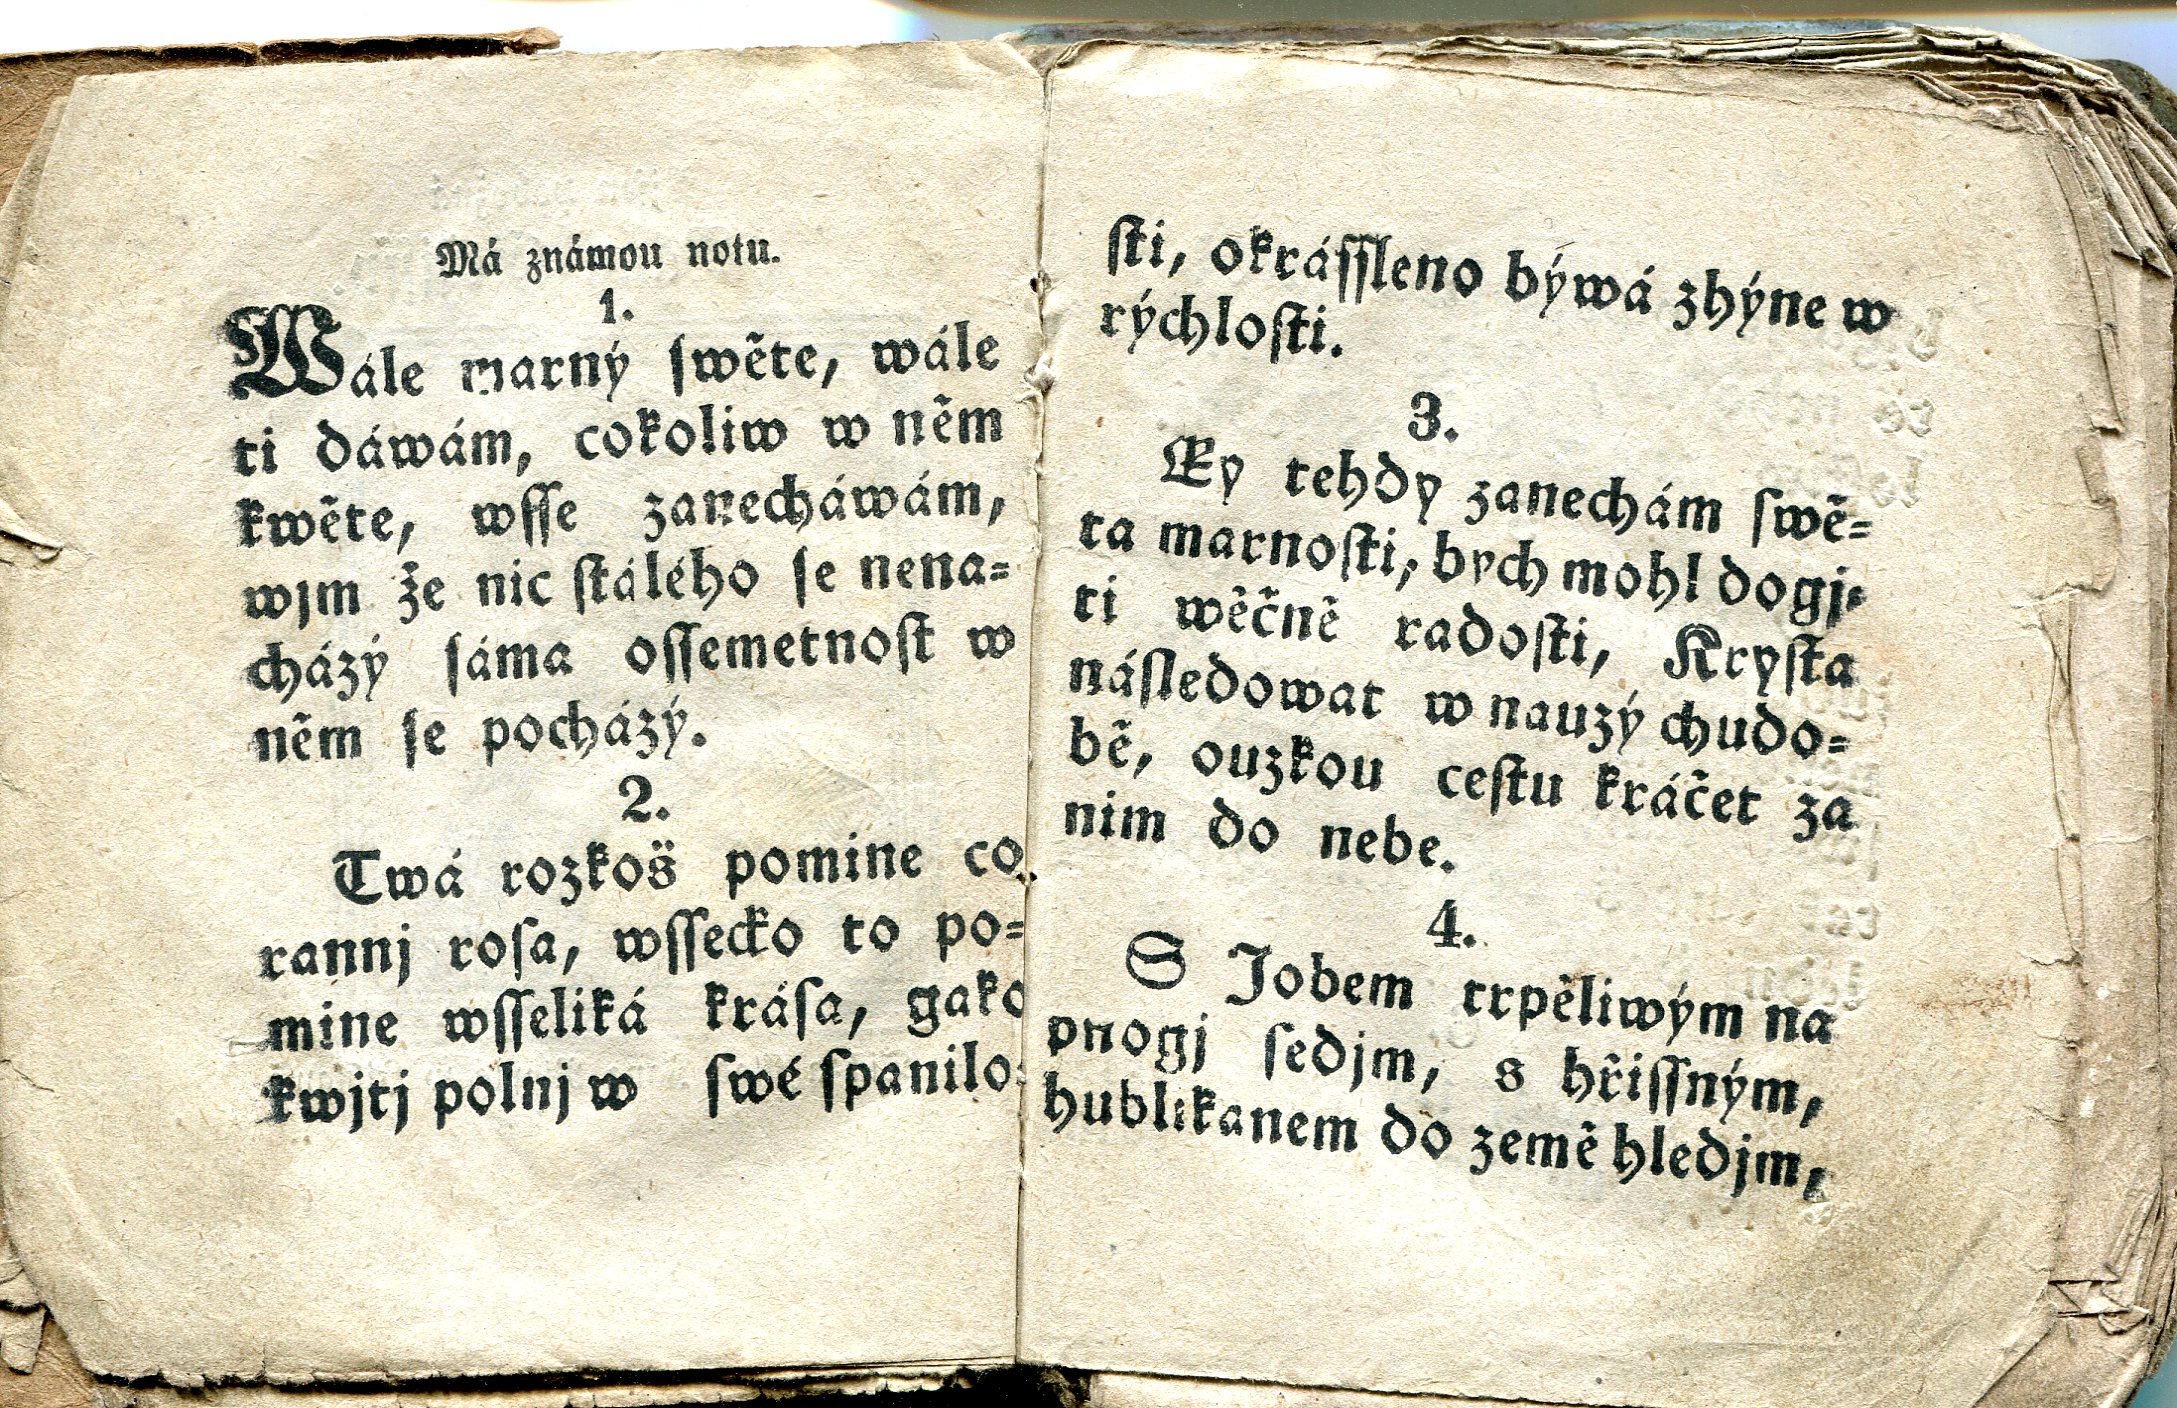 Má známou notu.
1.
Wále marný swěte, wále
ti dáwám, cokoliw w něm
kwěte, wſſe zanecháwám,
wjm že nic ſtálého ſe nena=
cházý ſáma oſſemetnoſt w
něm ſe pocházý.
2.
Twá rozkoš pomine co
rannj roſa, wſſecko to po=
mine wſſeliká kráſa, gako
kwjtj polnj w ſwé ſpanilo=
ſti, okráſſleno býwá zhýne w
rýchloſti.
3.
Ey tehdy zanechám ſwě=
ta marnoſti, bych mohl dogj=
ti wěčně radoſti, Kryſta
náſledowat w nauzý chudo=
bě, ouzkou ceſtu kráčet za
nim do nebe.
4.
S Jobem trpěliwým na
pnogj ſedjm, s hřiſſným,
hublikanem do země hledjm,